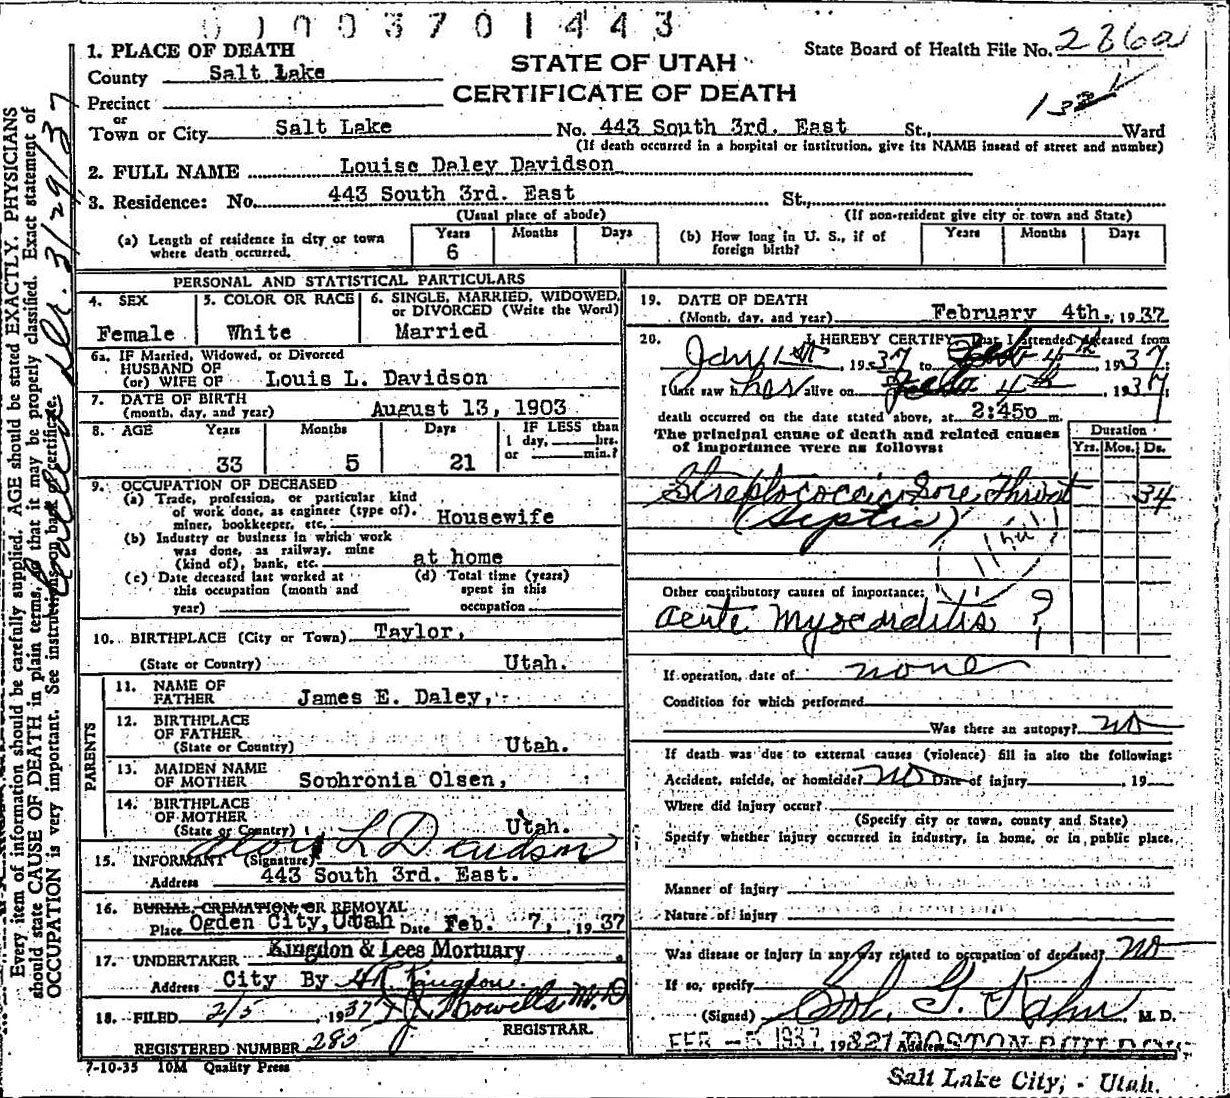 0 1 0 0 3 7 0 1 4 4 3
1. PLACE OF DEATH
County Salt Lake
Precinct
or
Town or City Salt Lake No. 443 South 3rd. East St., Ward
(If death occurred in a hospital or institution, give its NAME insead of street and number)
STATE OF UTAH
CERTIFICATE OF DEATH
State Board of Health File No. 286a
2. FULL NAME Louise Daley Davidson
3. Residence: No. 443 South 3rd. East St.,
(Usual place of abode) (If non-resident give city or town and State)
(a) Length of residence in city or town where death occurred. Years 6 Months Days
(b) How long in U. S., if of foreign birth? Years Months Days
PERSONAL AND STATISTICAL PARTICULARS
4. SEX Female
5. COLOR OR RACE White
6. SINGLE, MARRIED, WIDOWED, or DIVORCED (Write the Word) Married
6a. IF Married, Widowed, or Divorced
HUSBAND OF
(or) WIFE OF Louis L. Davidson
7. DATE OF BIRTH
(month, day, and year) August 13, 1903
8. AGE Years Months Days IF LESS than
1 day, hrs.
or min.?
33 5 21
9. OCCUPATION OF DECEASED
(a) Trade, profession, or particular kind
of work done, as engineer (type of),
miner, bookkeeper, etc. Housewife
(b) Industry or business in which work
was done, as railway, mine
(kind of), bank, etc. at home
(c) Date deceased last worked at
this occupation (month and
year)
(d) Total time (years)
spent in this
occupation
10. BIRTHPLACE (City or Town) Taylor,
(State or Country) Utah.
PARENTS
11. NAME OF
FATHER James E. Daley,
12. BIRTHPLACE
OF FATHER
(State or Country) Utah.
13. MAIDEN NAME
OF MOTHER Sophronia Olsen,
14. BIRTHPLACE
OF MOTHER
(State or Country) Utah.
15. INFORMANT (Signature) Louis L Davidson
Address 443 South 3rd. East.
16. BURIAL, CREMATION, OR REMOVAL
Place Ogden City, Utah Date Feb. 7, 1937
17. UNDERTAKER Kingdon & Lees Mortuary
Address City By
18. FILED 2/5, 1937 Howells M.D
REGISTRAR.
REGISTERED NUMBER 285
7-10-35 10M Quality Press
19. DATE OF DEATH
(Month, day, and year) February 4th., 1937
20. I HEREBY CERTIFY, That I attended deceased from
Jan 1st, 1937 to Feb 4th, 1937
I last saw her alive on Feb 4th, 1937
death occurred on the date stated above, at 2:45p m.
The principal cause of death and related causes
of importance were as follows:
Duration
Yrs. Mos. Ds.
Streptococcic Sore Throat 34
(Septic)
Other contributory causes of importance:
Acute Myocarditis ?
If operation, date of none
Condition for which performed
Was there an autopsy? no
If death was due to external causes (violence) fill in also the following:
Accident, suicide, or homicide? no Date of injury, 19
Where did injury occur?
(Specify city or town, county and State)
Specify whether injury occurred in industry, in home, or in public place.
Manner of injury
Nature of injury
Was disease or injury in any way related to occupation of deceased? no
If so, specify
(Signed) Sol. G. Kahn M. D.
FEB - 5 1937, 19 821 Address BOSTON BUILDING
Salt Lake City, - Utah.
Every item of information should be carefully supplied. AGE should be stated EXACTLY. PHYSICIANS
should state CAUSE OF DEATH in plain terms, so that it may be properly classified. Exact statement of
OCCUPATION is very important. See instructions on back of certificate.
3/29/37